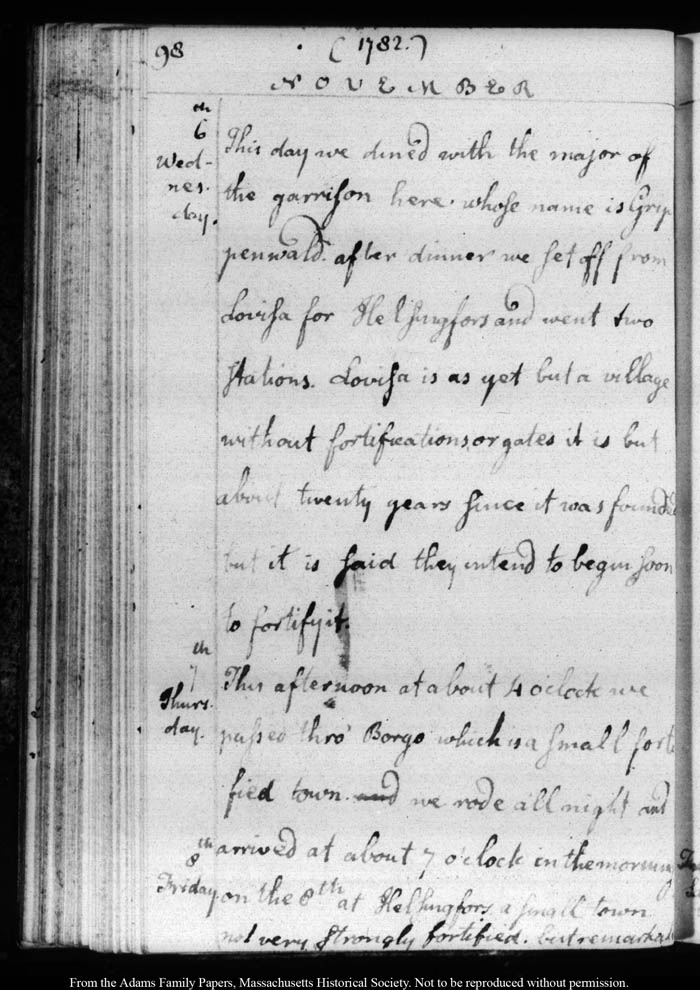 98 (1782.)
NOVEMBER
th
6
Wed-
nes.
day.
This day we dined with the major of
the garrison here. whose name is Grip
penwald. after dinner we set off from
Lovisa for Helsingfors and went two
stations. Lovisa is as yet but a village
without fortifications or gates it is but
about twenty years since it was founded
but it is said they intend to begin soon
to fortify it.
th
7
Thurs.
day.
This afternoon at about 4 oclock we
passed thro' Borgo which is a small forti
fied town. and we rode all night and
th
8
Friday
arrived at about 7 o'clock in the morning
on the 8th at Helsingfors a small town
not very strongly fortified. but remarka
From the Adams Family Papers, Massachusetts Historical Society. Not to be reproduced without permission.